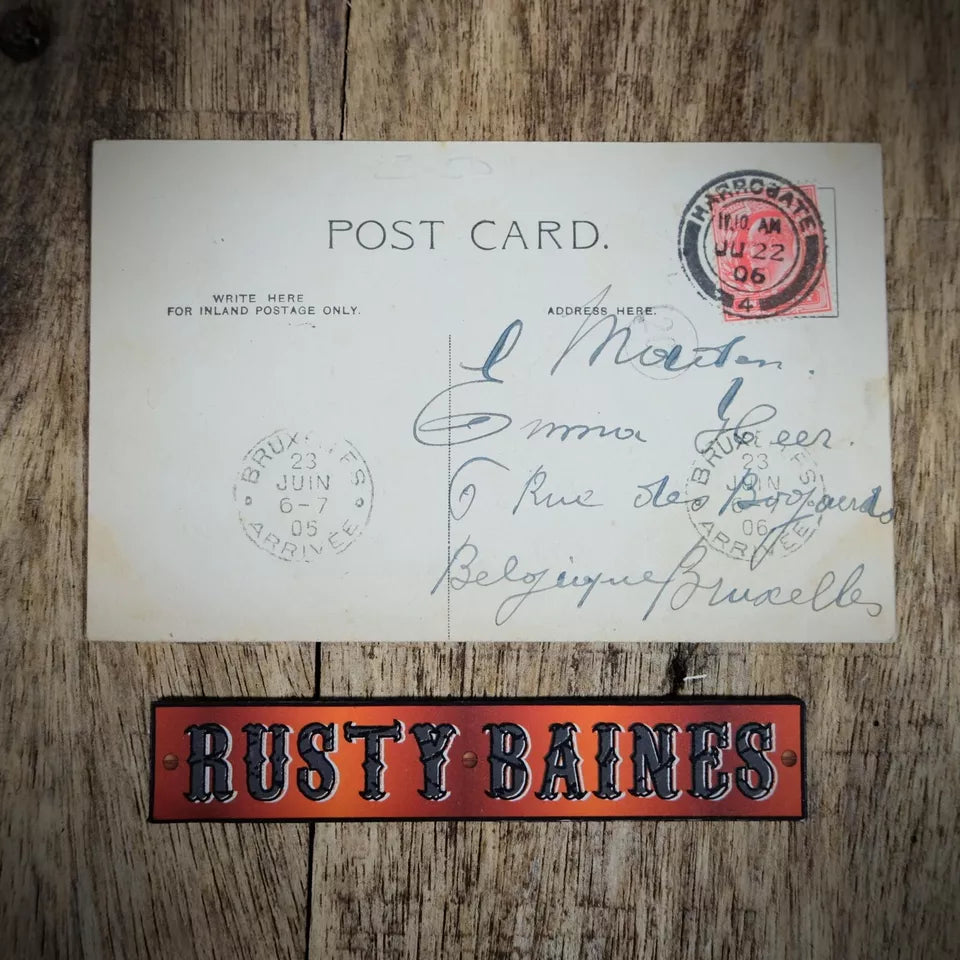 POST CARD.
HARROGATE
11.10 AM
JU 22
06
4
WRITE HERE
FOR INLAND POSTAGE ONLY.
ADDRESS HERE.
Emma Heer.
6 Rue des Bogards
Belgique Bruxelles
BRUXELLES
23
JUIN
6-7
05
ARRIVÉE
BRUXELLES
23
JUIN
6-7
06
ARRIVÉE
RUSTY BAINES